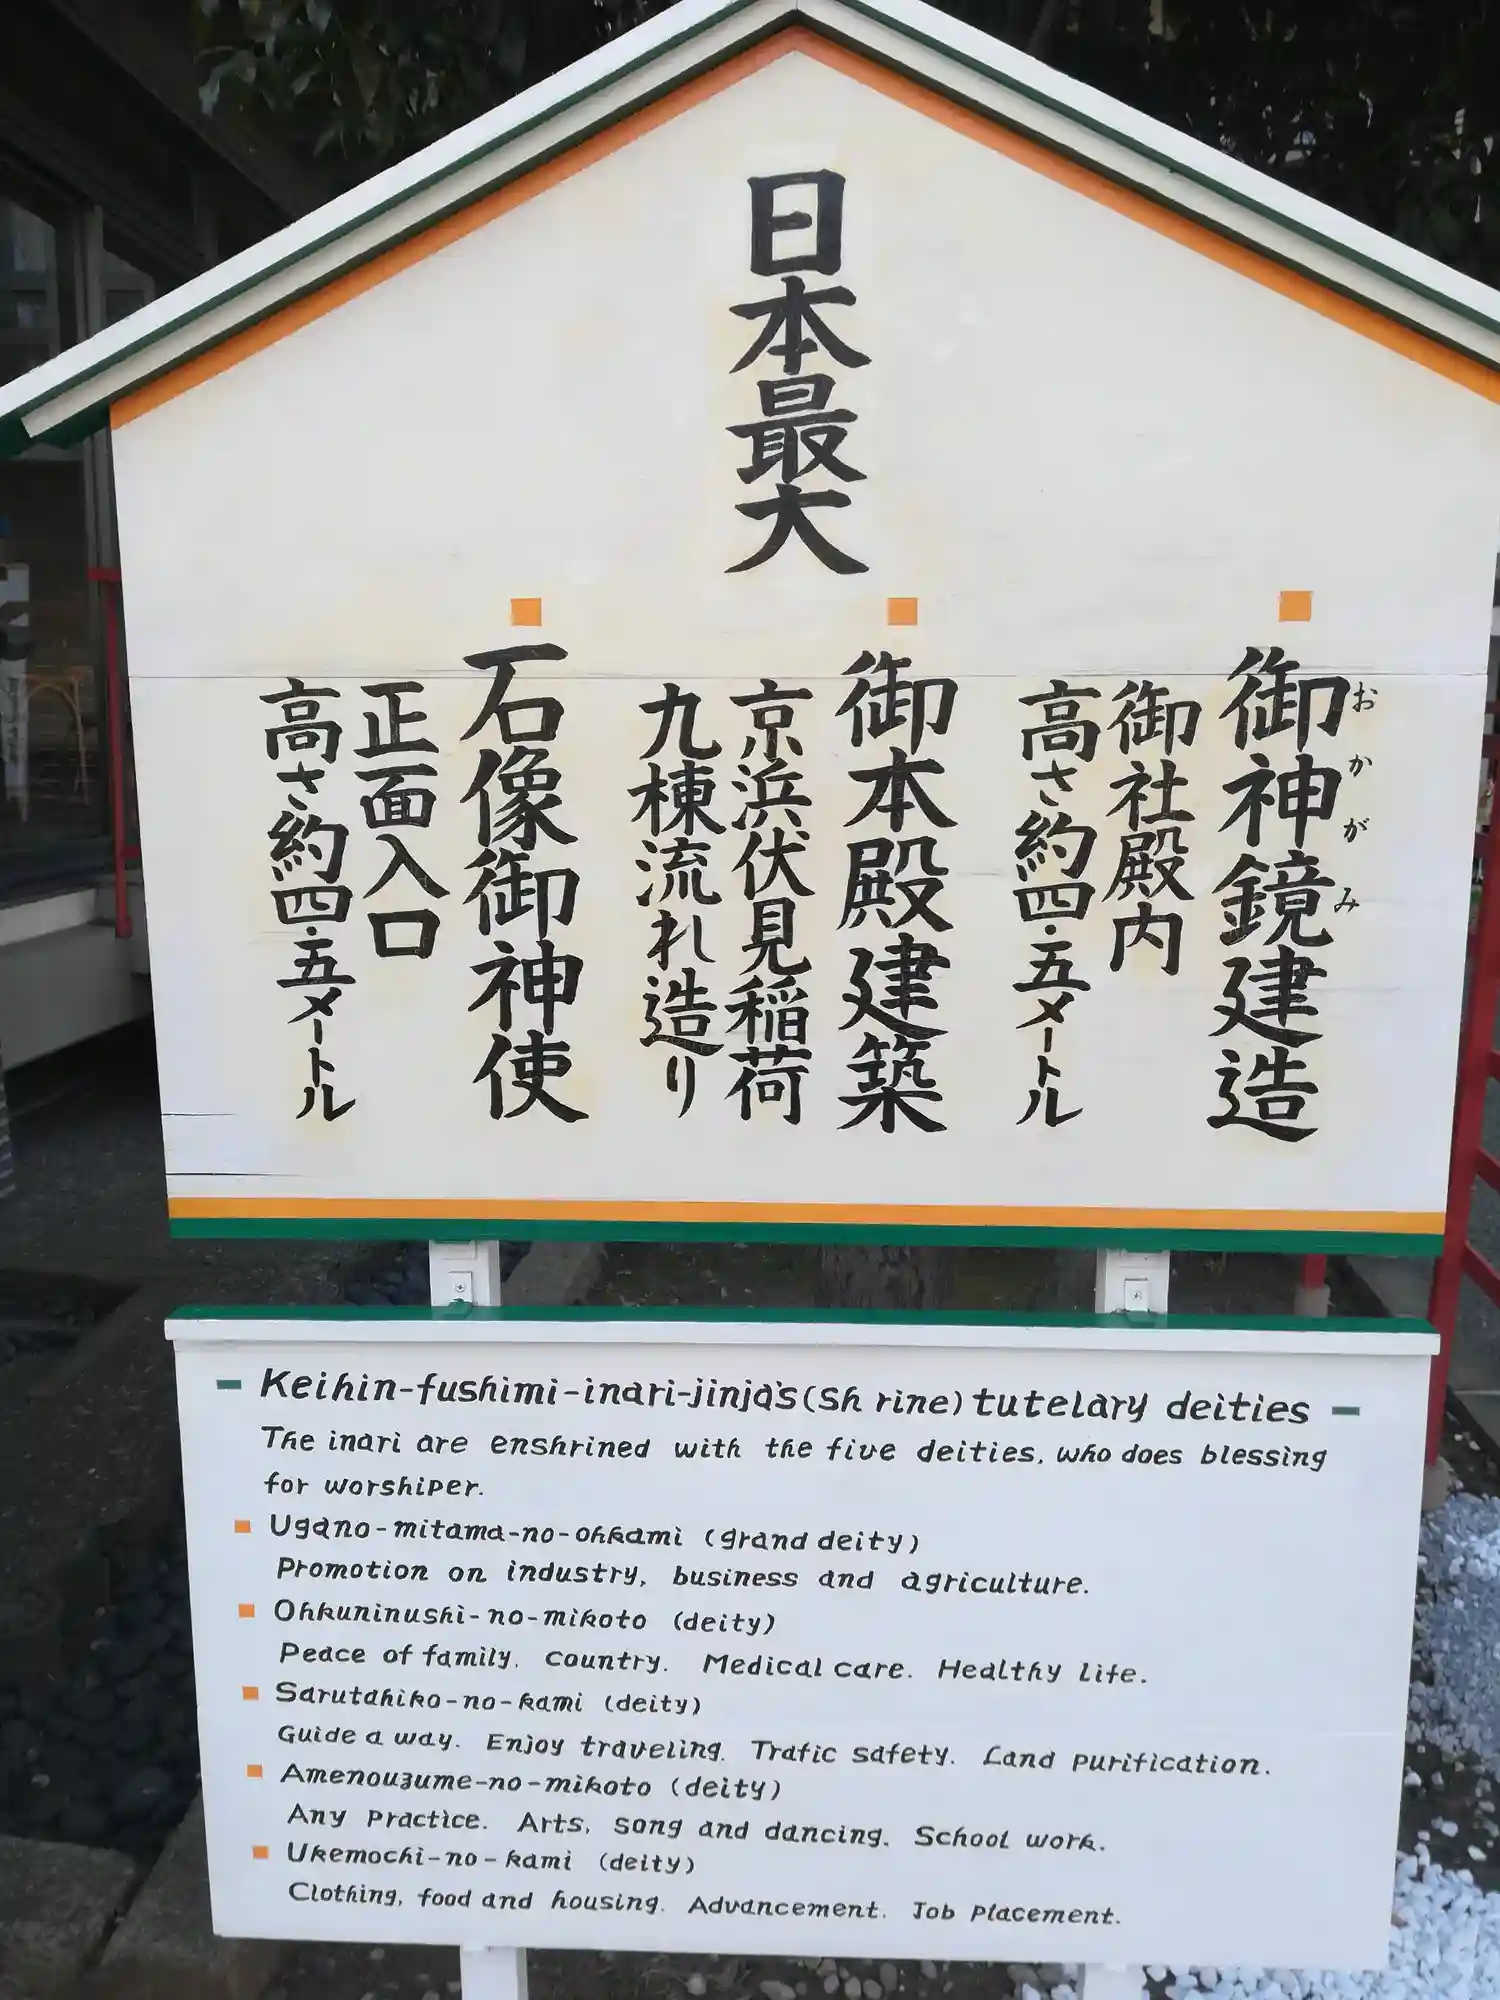 日本最大
御神鏡建造
おかがみ
御社殿内
高さ約四・五メートル
御本殿建築
京浜伏見稲荷
九棟流れ造り
石像御神使
正面入口
高さ約四・五メートル
Keihin-fushimi-inari-jinja's (Sh rine) tutelary deities
The inari are enshrined with the five deities, who does blessing
for worshiper.
Ugano-mitama-no-ohkami (grand deity)
Promotion on industry, business and agriculture.
Ohkuninushi-no-mikoto (deity)
Peace of family. country. Medical care. Healthy life.
Sarutahiko-no-kami (deity)
Guide a way. Enjoy traveling. Trafic safety. Land purification.
Amenouzume-no-mikoto (deity)
Any practice. Arts, song and dancing. School work.
Ukemochi-no-kami (deity)
Clothing, food and housing. Advancement. Job placement.